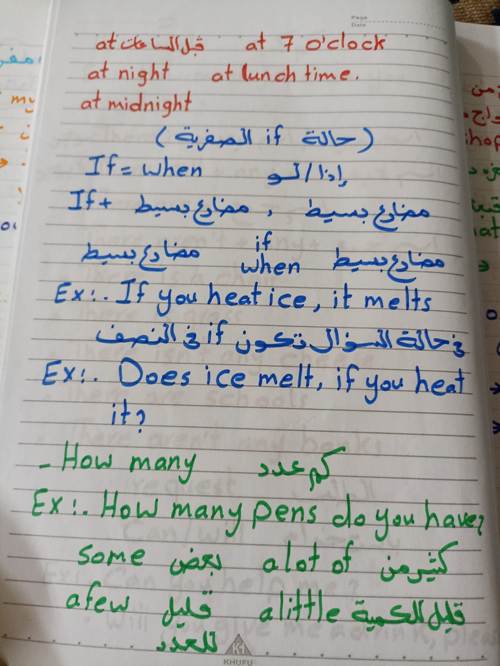 at قبل الساعات at 7 o'clock
at night at lunch time.
at midnight
(حالة if الصفرية)
If = when إذا/لو
If + مضارع بسيط , مضارع بسيط
مضارع بسيط if when مضارع بسيط
Ex:. If you heat ice, it melts
فى حالة السؤال تكون if فى النصف
Ex:. Does ice melt, if you heat
it?
- How many كم عدد
Ex:. How many pens do you have?
some بعض a lot of كثير من
a few قليل للعدد a little قليل الكمية
KHUFU